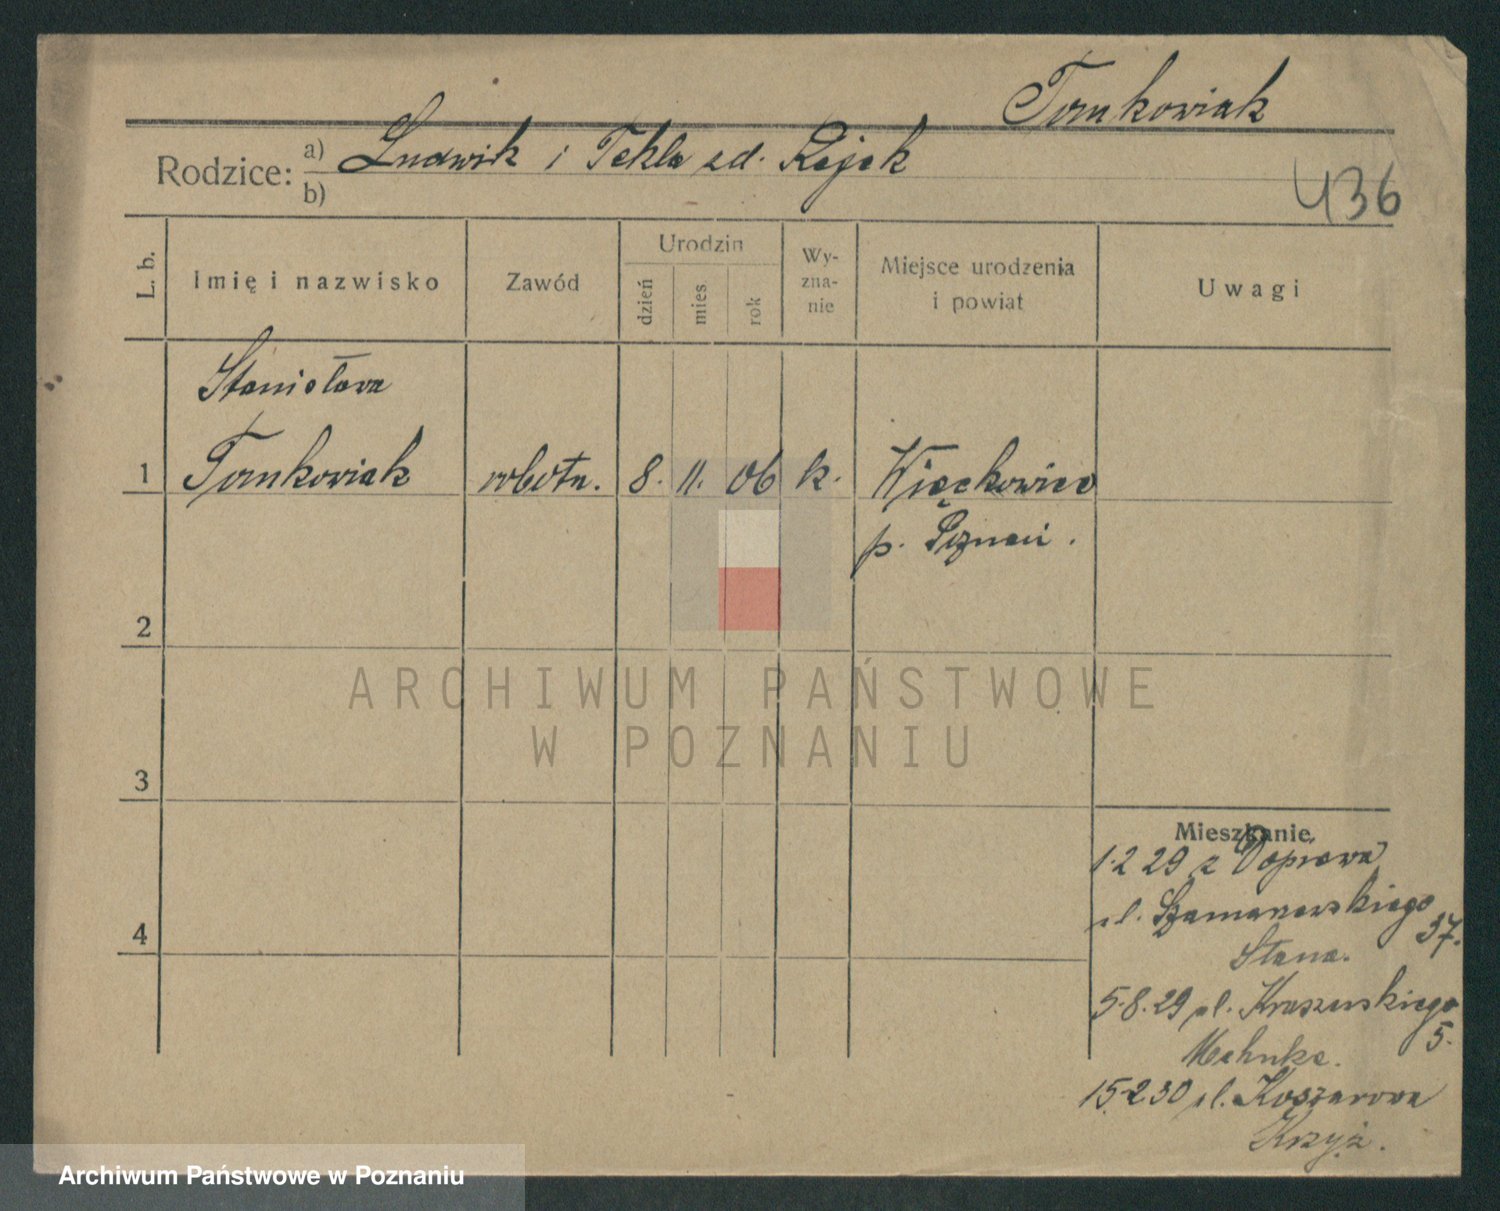 Tomkowiak
Rodzice: a) Ludwik i Tekla zd. Rajek
b)
436
L. b.
Imię i nazwisko
Zawód
Urodzin
dzień
mies
rok
Wy-
zna-
nie
Miejsce urodzenia
i powiat
Uwagi
Stanisława
1 Tomkowiak robotn. 8. 11. 06 k. Więckowice
p. Poznań.
2
ARCHIWUM PAŃSTWOWE
W POZNANIU
3
Mieszkanie
1.2 29 z
ul. 37.
4
5.8.29 ul. Kraszewskiego
5.
15.2.30 ul. Koszarowa
Krzyż.
Archiwum Państwowe w Poznaniu